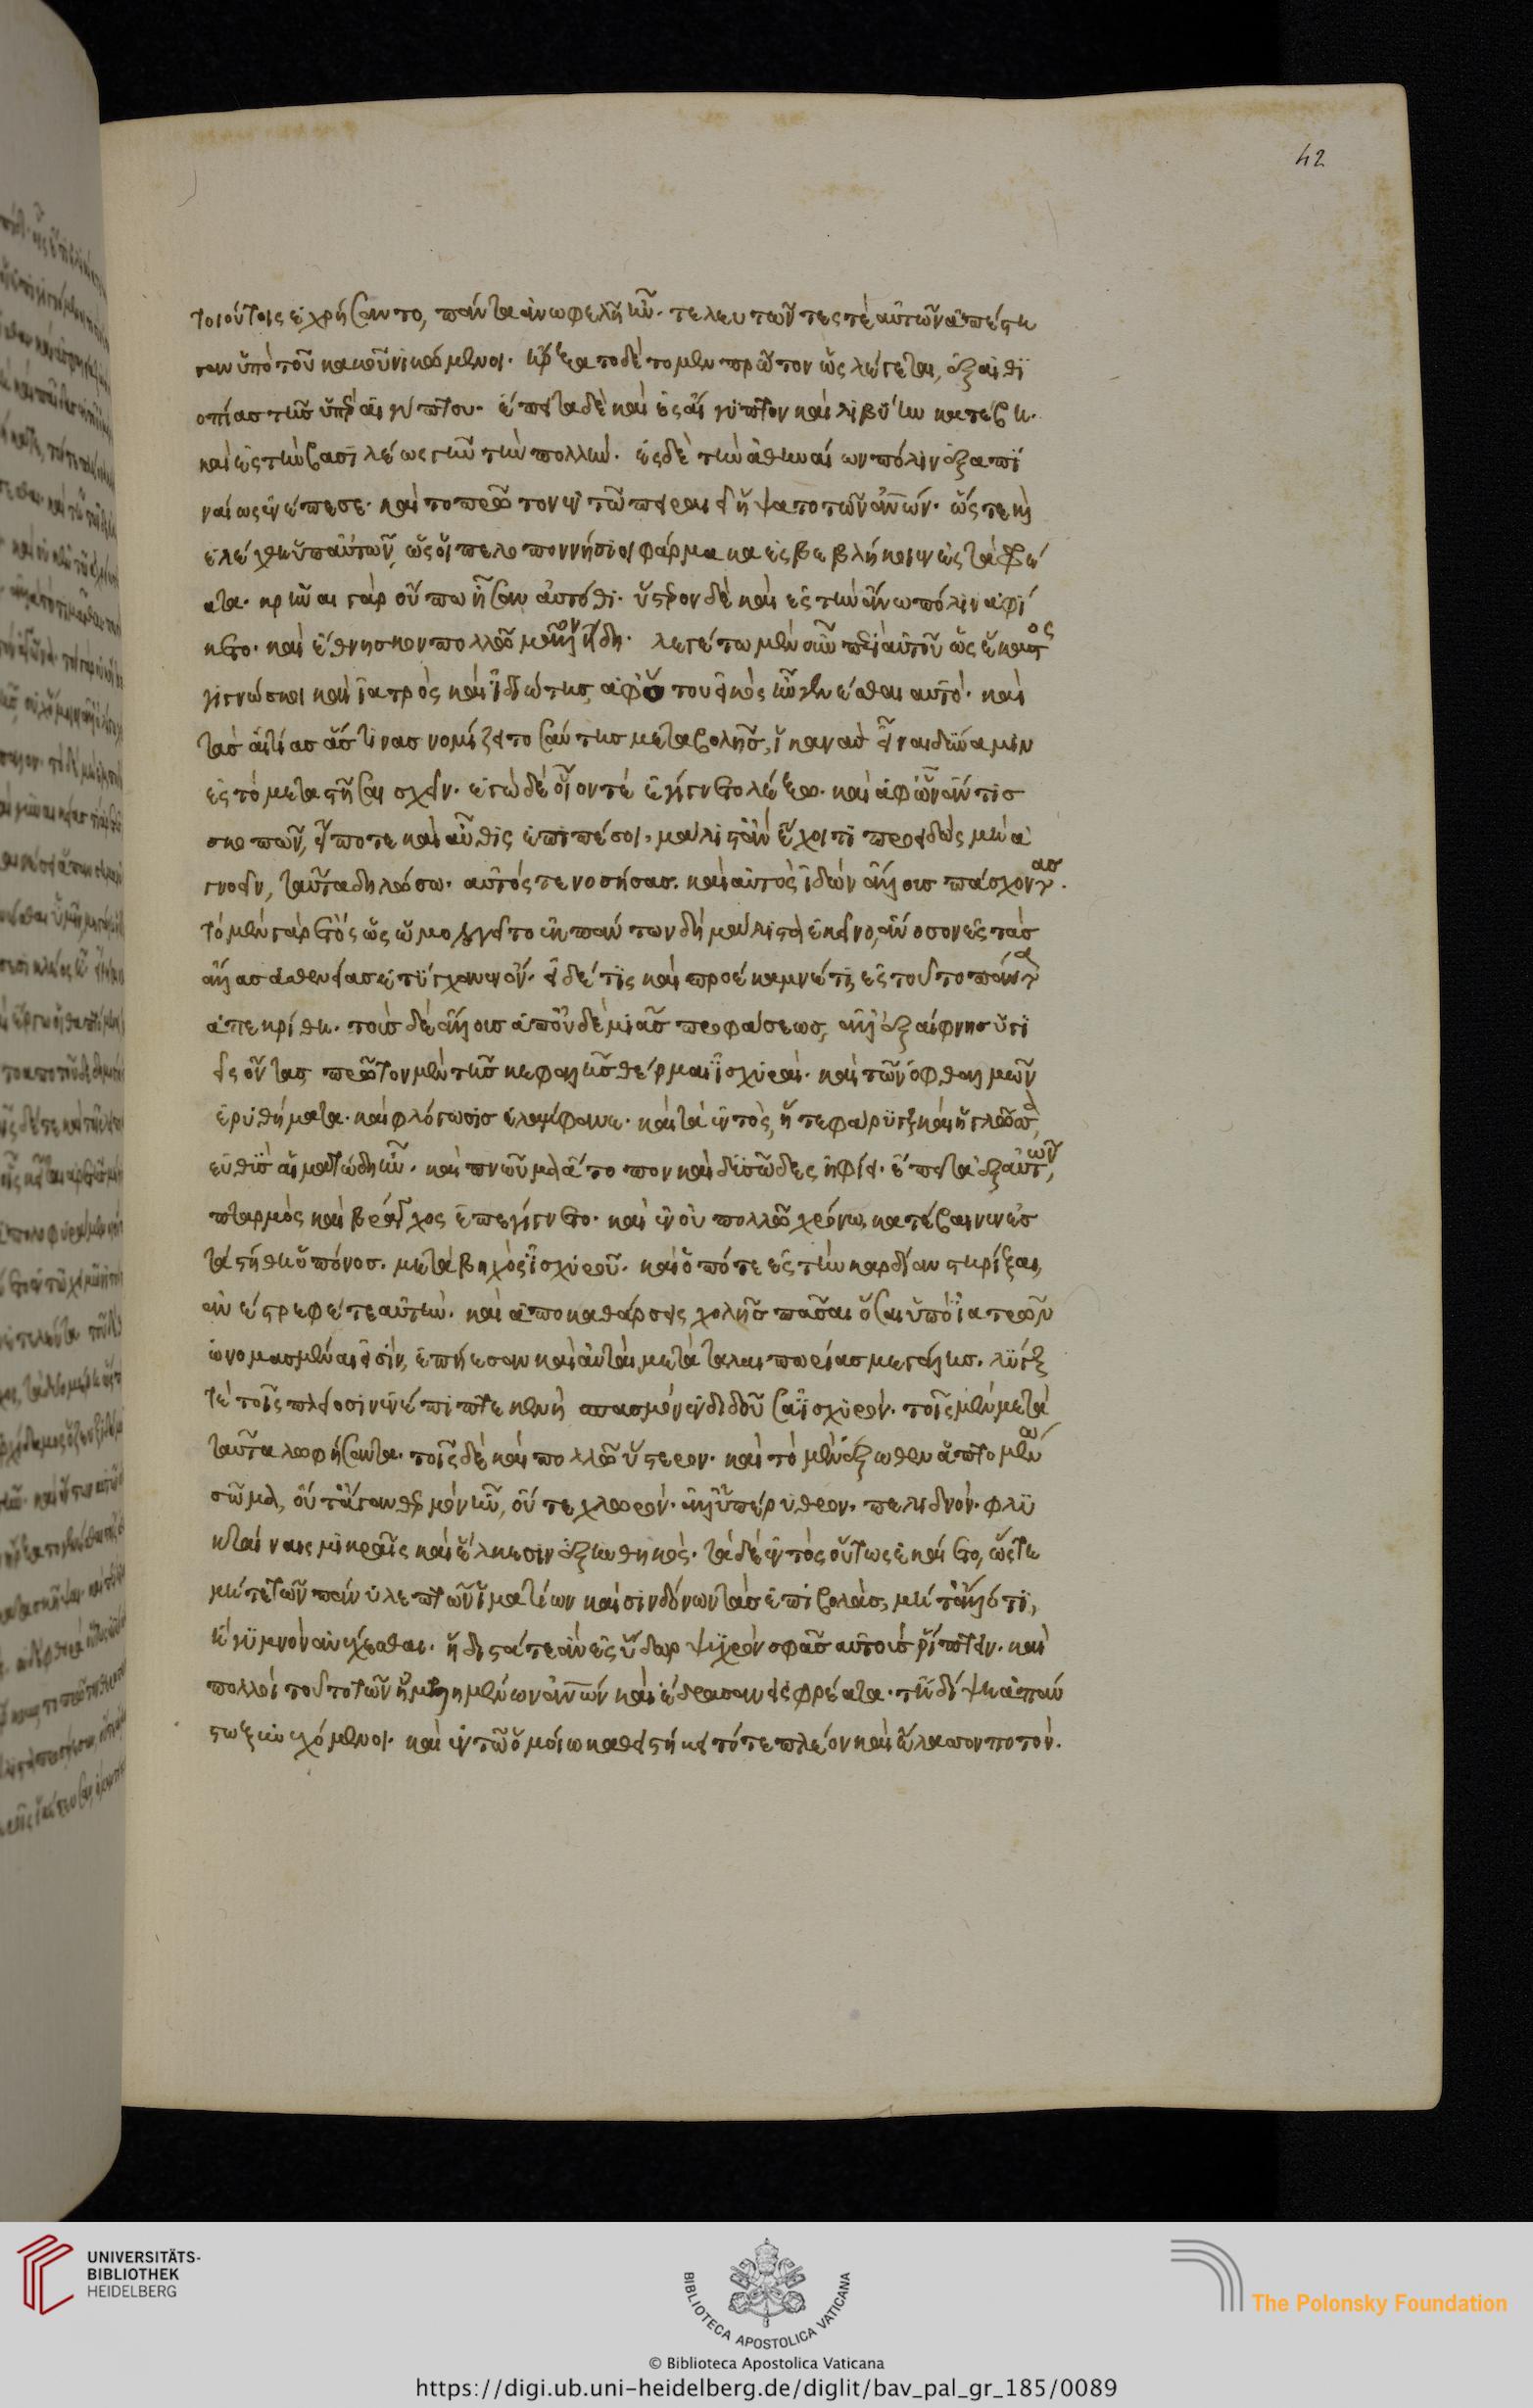 τοιούτοις ἐχρήσαντο, πάντα ἀνωφελῆ ἦν. τελευτῶντές τε αὐτῶν ἀπέστη
σαν ὑπὸ τοῦ κακοῦ νικώμενοι. ἤρξατο δὲ τὸ μὲν πρῶτον ὡς λέγεται, ἐξ αἰθι
οπίας τῆς ὑπὲρ αἰγύπτου. ἔπειτα δὲ καὶ ἐς αἴγυπτον καὶ λιβύην κατέβη.
καὶ ἐς τὴν βασιλέως γῆν τὴν πολλήν. ἐς δὲ τὴν ἀθηναίων πόλιν ἐξαπι
ναίως ἐνέπεσε. καὶ τὸ πρῶτον ἐν τῷ πειραιεῖ ἥψατο τῶν ἀν̅ων. ὥστε καὶ
ἐλέχθη ὑπ' αὐτῶν, ὡς οἱ πελοποννήσιοι φάρμακα ἐσβεβλήκοιεν ἐς τὰ φρέ
ατα. κρῆναι γὰρ οὔπω ἦσαν αὐτόθι. ὕστερον δὲ καὶ ἐς τὴν ἄνω πόλιν ἀφί
κετο. καὶ ἔθνησκον πολλῷ μᾶλλον ἤδη. λεγέτω μὲν οὖν περὶ αὐτοῦ ὡς ἕκαστος
γιγνώσκει καὶ ἰατρὸς καὶ ἰδιώτης, ἀφ' οὗ του εἰκὸς ἦν γενέσθαι αὐτό. καὶ
τὰς αἰτίας ἅς τινας νομίζει τοσαύτης μεταβολῆς, ἱκανὰς εἶναι δύναμιν
ἐς τὸ μεταστῆσαι σχεῖν. ἐγὼ δὲ οἷόν τε ἐγίγνετο λέξω. καὶ ἀφ' ὧν ἄν τις
σκοπῶν, εἴ ποτε καὶ αὖθις ἐπιπέσοι, μάλιστ' ἂν ἔχοι τι προειδὼς μὴ ἀ
γνοεῖν, ταῦτα δηλώσω. αὐτός τε νοσήσας. καὶ αὐτὸς ἰδὼν ἄλλους πάσχοντας.
τὸ μὲν γὰρ ἔτος ὡς ὡμολογεῖτο ἐκ πάντων δὴ μάλιστα ἐκεῖνο, ἄνοσον ἐς τὰς
ἄλλας ἀσθενείας ἐτύγχανεν ὄν. εἰ δέ τις καὶ προέκαμνέ τι, ἐς τοῦτο πάντα
ἀπεκρίθη. τοὺς δὲ ἄλλους ἀπ' οὐδεμιᾶς προφάσεως, ἀλλ' ἐξαίφνης ὑγι
εῖς ὄντας πρῶτον μὲν τῆς κεφαλῆς θέρμαι ἰσχυραί. καὶ τῶν ὀφθαλμῶν
ἐρυθήματα. καὶ φλόγωσις ἐλάμβανε. καὶ τὰ ἐντὸς, ἥ τε φάρυγξ καὶ ἡ γλῶσσα,
εὐθὺς αἱματώδη ἦν. καὶ πνεῦμα ἄτοπον καὶ δυσῶδες ἠφίει. ἔπειτα ἐξ αὐτῶν,
πταρμὸς καὶ βράγχος ἐπεγίγνετο. καὶ ἐν οὐ πολλῷ χρόνῳ, κατέβαινεν ἐς
τὰ στήθη ὁ πόνος. μετὰ βηχὸς ἰσχυροῦ. καὶ ὁπότε ἐς τὴν καρδίαν στηρίξαι,
ἀνέστρεφέ τε αὐτήν. καὶ ἀποκαθάρσεις χολῆς πᾶσαι ὅσαι ὑπὸ ἰατρῶν
ὠνομασμέναι εἰσὶν, ἐπῄεσαν καὶ αὗται μετὰ ταλαιπωρίας μεγάλης. λύγξ
τε τοῖς πλείοσιν ἐνέπιπτε κενὴ σπασμὸν ἐνδιδοῦσα ἰσχυρόν. τοῖς μὲν μετὰ
ταῦτα λωφήσαντα. τοῖς δὲ καὶ πολλῷ ὕστερον. καὶ τὸ μὲν ἔξωθεν ἁπτομένῳ
σῶμα, οὔτ' ἄγαν θερμὸν ἦν, οὔτε χλωρόν. ἀλλ' ὑπέρυθρον. πελιδνόν. φλυ
κταίναις μικραῖς καὶ ἕλκεσιν ἐξηνθηκός. τὰ δὲ ἐντὸς οὕτως ἐκαίετο, ὥστε
μήτε τῶν πάνυ λεπτῶν ἱματίων καὶ σινδόνων τὰς ἐπιβολὰς, μήτ' ἄλλό τι,
ἢ γυμνὸν ἀνέχεσθαι. ἥδιστά τε ἂν ἐς ὕδωρ ψυχρὸν σφᾶς αὐτοὺς ῥίπτειν. καὶ
πολλοὶ τοῦτο τῶν ἠμελημένων ἀν̅ων καὶ ἔδρασαν εἰς φρέατα. τῇ δίψῃ ἀπαύ
στῳ ξυνεχόμενοι. καὶ ἐν τῷ ὁμοίῳ καθειστήκει τό τε πλέον καὶ ἔλασσον ποτόν.
42
UNIVERSITÄTS-
BIBLIOTHEK
HEIDELBERG
BIBLIOTECA APOSTOLICA VATICANA
The Polonsky Foundation
© Biblioteca Apostolica Vaticana
https://digi.ub.uni-heidelberg.de/diglit/bav_pal_gr_185/0089